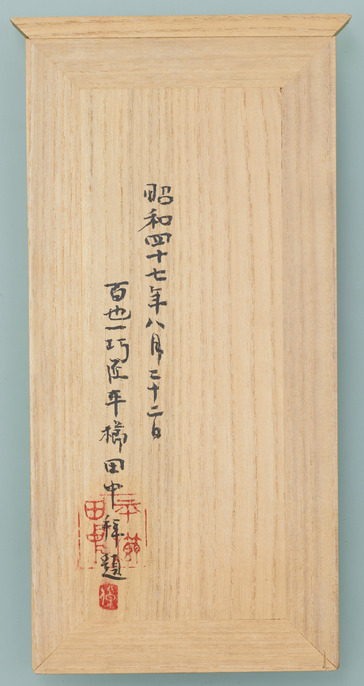 昭和四十七年八月二十二日
百也一巧匠平櫛田中拝題
平櫛田中